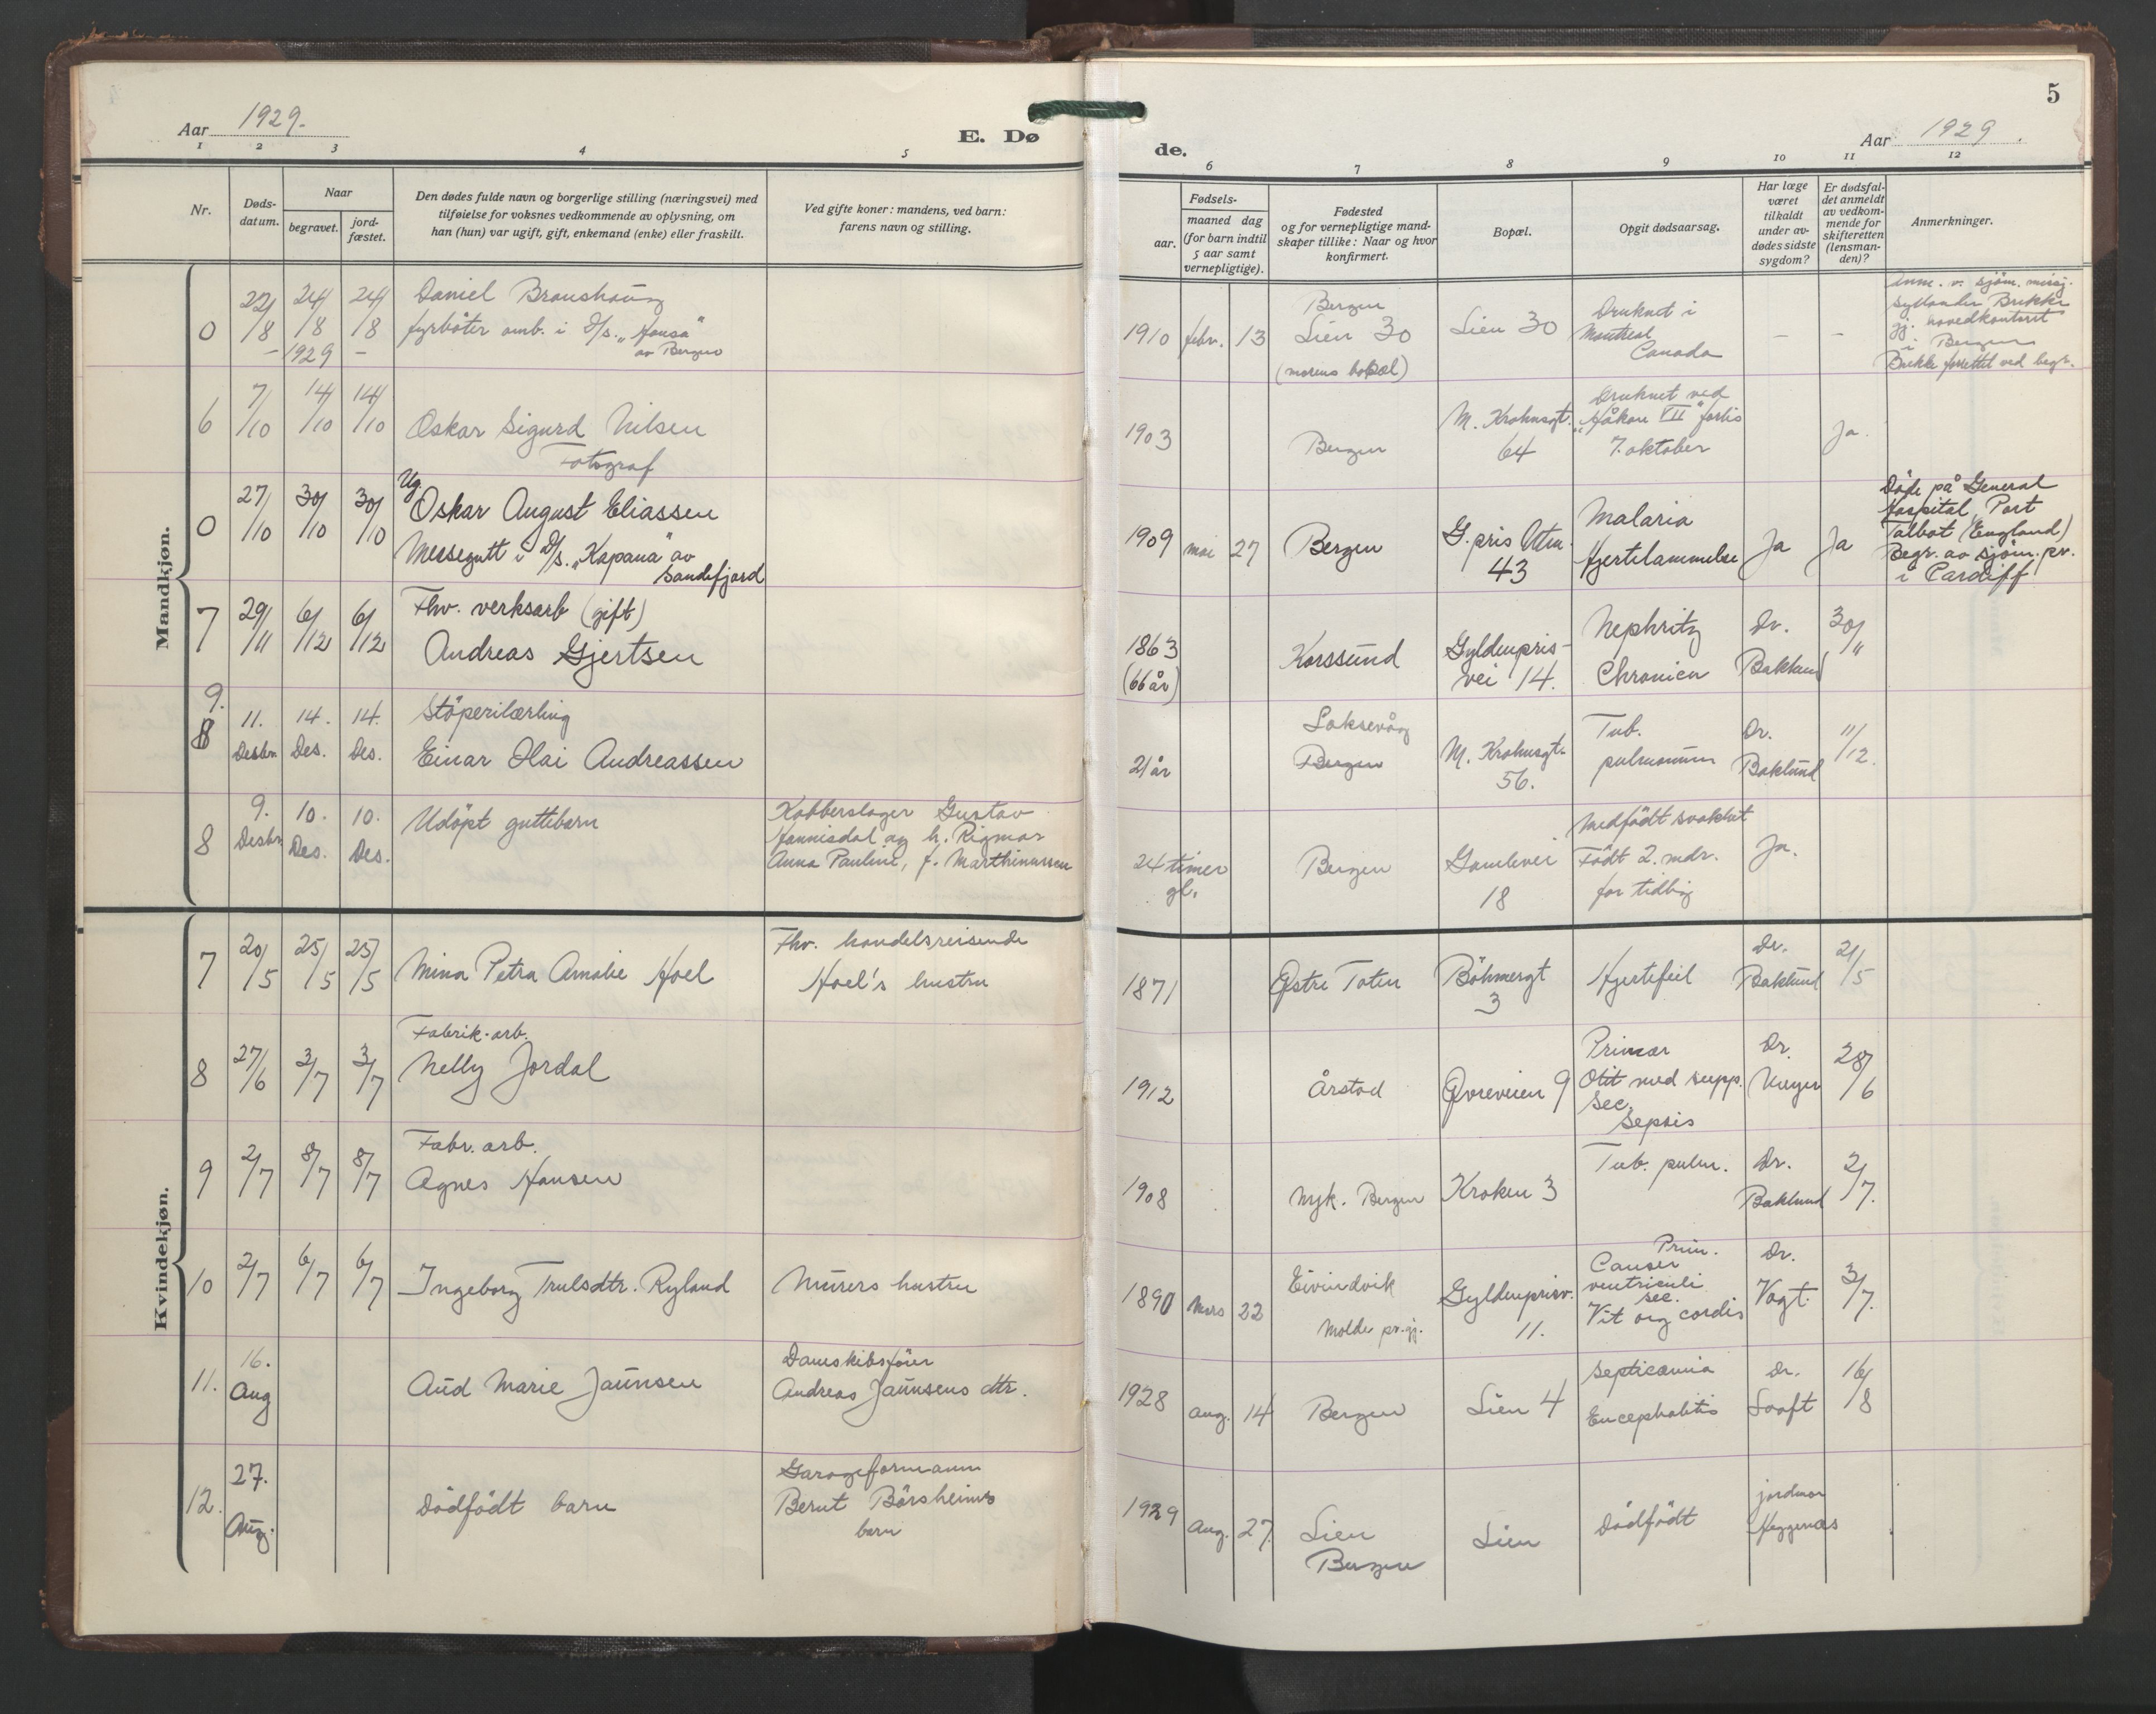 Aar 1929.
E. Dø
1 2 3 4 5
Nr.
Døds-
datum.
Naar
begravet.
jord-
fæstet.
Den dødes fulde navn og borgerlige stilling (næringsvei) med
tilføielse for voksnes vedkommende av oplysning, om
han (hun) var ugift, gift, enkemand (enke) eller fraskilt.
Ved gifte koner: mandens, ved barn:
farens navn og stilling.
Mandkjøn.
0
22/8 24/8 24/8
- 1929 -
Daniel
fyrbøter omb. i D/s. „Hansa"
av Bergen
6
7/10 14/10 14/10
Oskar Sigurd Nilsen
Fotograf
0
27/10 30/10 30/10
Ug.
Oskar August Eliassen
Messegutt i D/s. „Kapana" av
Sandefjord
7
29/11 6/12 6/12
Fhv. verksarb (gift)
Andreas Gjertsen
9.
8
11. 14. 14.
Desbr. Des. Des.
Støperilærling
Einar Olai Andreassen
8
9. 10. 10.
Desbr. Des. Des.
Udøpt guttebarn
Kobberslager Gustav
Hannisdal og h. Rigmor
Anna Pauline, f. Marthinussen
Kvindekjøn.
7
20/5 25/5 25/5
Mina Petra Amalie Hoel
Fhv. handelsreisende
Hoel's hustru
8
27/6 3/7 3/7
Fabrik-arb.
Nelly Jordal
9
2/7 8/7 8/7
Fabr. arb.
Agnes Hansen
10
2/7 6/7 6/7
Ingeborg Trulsdtr. Ryland
Murers hustru
11.
16.
Aug
Aud Marie Jaunsen
Damskibsfører
Andreas Jaunsens dtr.
12.
27.
Aug.
Dødfødt barn
Garageformann
Bernt Børsheims
barn
5
de.
Aar 1929.
6 7 8 9 10 11 12
Fødsels-
aar.
maaned dag
(for barn indtil
5 aar samt
vernepligtige).
Fødested
og for vernepligtige mand-
skaper tillike: Naar og hvor
konfirmert.
Bopæl.
Opgit dødsaarsag.
Har læge
været
tilkaldt
under av-
dødes sidste
sygdom?
Er dødsfal-
det anmeldt
av vedkom-
mende for
skifteretten
(lensman-
den)?
Anmerkninger.
1910 febr. 13
Bergen
Lien 30
(morens bopæl)
Lien 30
Druknet i
Montreal
Canada
- -
Anm. v. sjøm. misj.
Brekke
gj. hovedkontoret
i Bergen
Brekke forrettet ved begr.
1903
Bergen
M. Krohnsgt.
64
Druknet ved
„Håkon VII" forlis
7. oktober
Ja.
1909 mai 27
Bergen
G.pris Utm.
43
Malaria
Hjertelammelse
Ja Ja
Døde på General
Hospital, Port
Talbot (England)
Begr. av sjøm. pr.
i Cardiff
1863
(66 år)
Korssund
Gyldenpris-
vei 14.
Nephritz
Chronica
Dr.
Baklund
30/11
21 år
Laksevåg
Bergen
M. Krohnsgt.
56.
Tub.
pulmonum
Dr.
Baklund
11/12.
24 timer
gl.
Bergen
Gamlevei
18
Medfødt svakhet
Født 2. mdr.
for tidlig
Ja.
1871
Østre Toten
Böhmergt
3
Hjertefeil
Dr.
Baklund
21/5
1912
Årstad
Øvreveien 9
Primær
Otit med supp.
sec.
Sepsis
Dr.
28/6
1908
Nyk. Bergen
Kroken 3
Tub. pulm.
Dr.
Baklund
2/7.
1890 Mars 22
Eivindvik
Molde pr.gj.
Gyldenprisv.
11.
Prim.
Cancer
ventriculi
sec.
Vit org cordis
Dr.
Vogt.
3/7.
1928 Aug. 14
Bergen
Lien 4
Septicæmia
Encephalitis
Dr.
Looft
16/8
1929 Aug. 27.
Lien
Bergen
Lien
Dødfødt
jordmor
Heggenæs